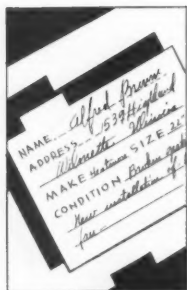 NAME Alfred Brown
ADDRESS 1539 Highland
Wilmette Illinois
MAKE SIZE 22"
CONDITION Broken
New installation of
free